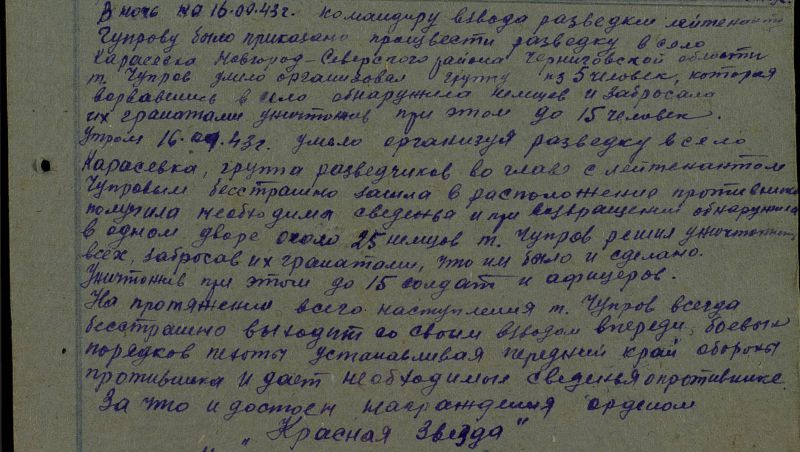 В ночь на 16.09.43г. командиру взвода разведки лейтенанту
Чупрову было приказано произвести разведку в село
Карасевка Новгород-Северского района Черниговской области
т. Чупров умело организовал группу из 5 человек, которая
ворвавшись в село обнаружила немцев и забросала
их гранатами уничтожив при этом до 15 человек.
Утром 16.09.43г. умело организуя разведку в село
Карасевка, группа разведчиков во главе с лейтенантом
Чупровым бесстрашно зашла в расположение противника
получила необходима сведенья и при возвращении обнаружила
в одном дворе около 25 немцев т. Чупров решил уничтожить
всех, забросав их гранатами, что им было и сделано.
Уничтожив при этом до 15 солдат и афицеров.
На протяжении всего наступления т. Чупров всегда
бесстрашно выходит со своим взводом впереди боевых
порядков пехоты устанавливая передний край обороны
противника и дает необходимые сведенья о противнике.
За что и достоен награждения орденом
"Красная Звезда"